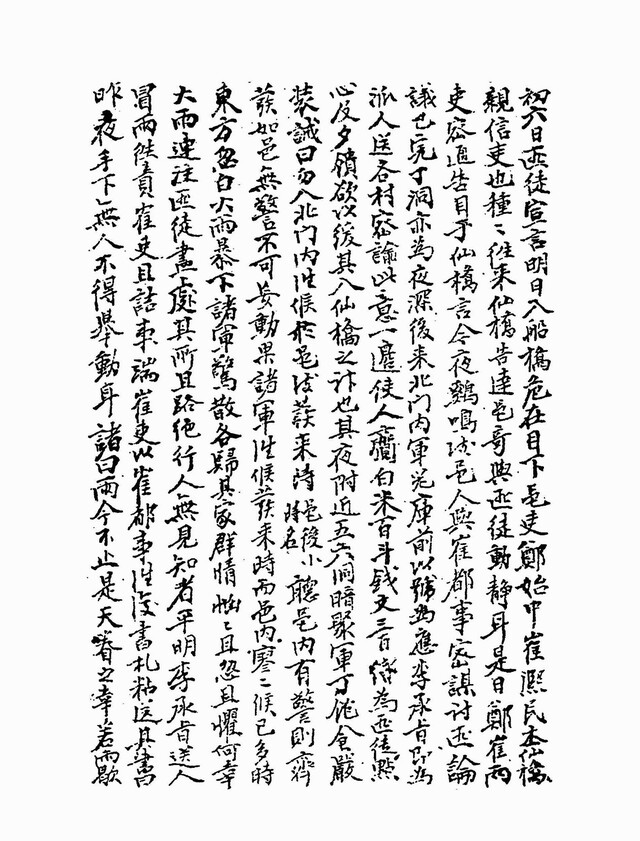 初六日匪徒宣言明日入船橋危在目下邑吏鄭始中崔熙民本仙橋
親信吏也種〻徃来仙橋告達邑哥與匪徒動静耳是日鄭崔両
吏密通告目于仙橋言今夜鷄鳴時邑人與崔都事密謀討匪論
議已完丁洞亦為夜深後来北门內軍器庫前以號為應李承旨即為
派人送各村密諭此意一邊使人齎白米百斗銭文三百緡為匪徒點
心反夕饋欲以緩其入仙橋之计也其夜附近五六洞暗聚軍丁飭令嚴
装誡曰勿入北门內泩候於邑後莪来詩邑後小地名聽邑內有警則齊
莪如邑無警不可妄動果諸軍泩候莪来時而邑內寥〻候已多時
東方忽白大雨暴下諸軍驚散各歸其家群情怞〻且忽且懼何幸
大雨連注匪徒盡處其所且路绝行人無見知者平明李承旨送人
冒雨徃責崔吏且詰事端崔吏以崔都事泩復書札粘送其書曰
昨夜手下無人不得舉動耳諸曰雨今不止是天眷之幸若雨歇